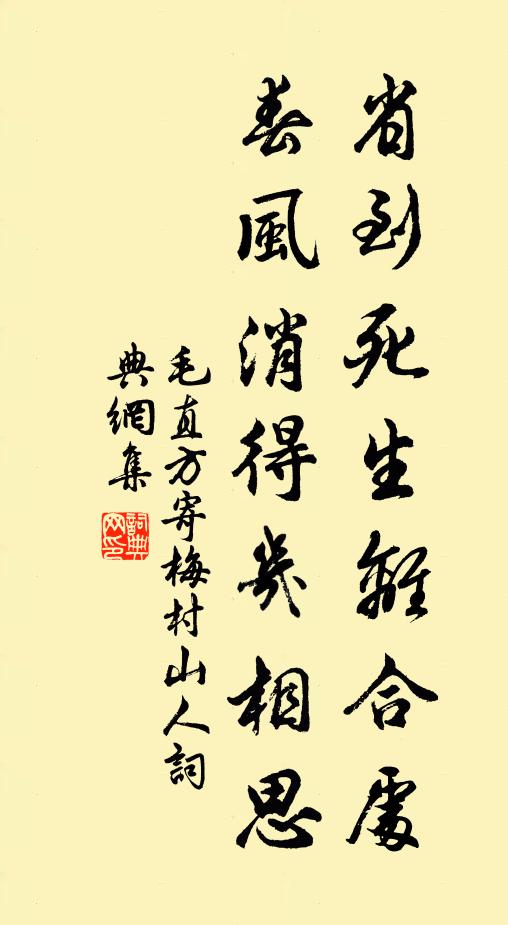 省到死生離合處
春風消得幾相思
毛直方寄梅村山人詞
典網集
詞典
网印